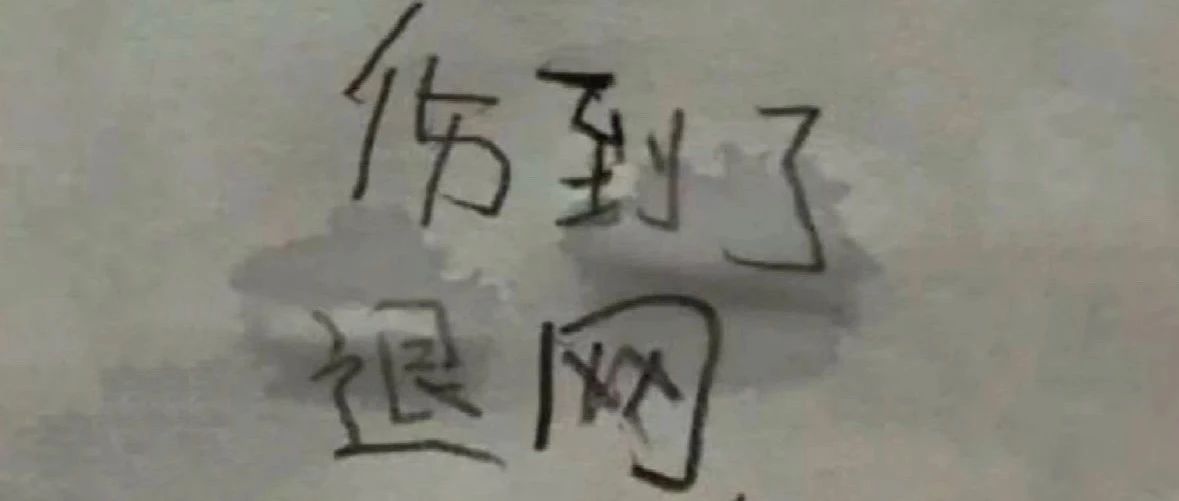 伤到了
退网